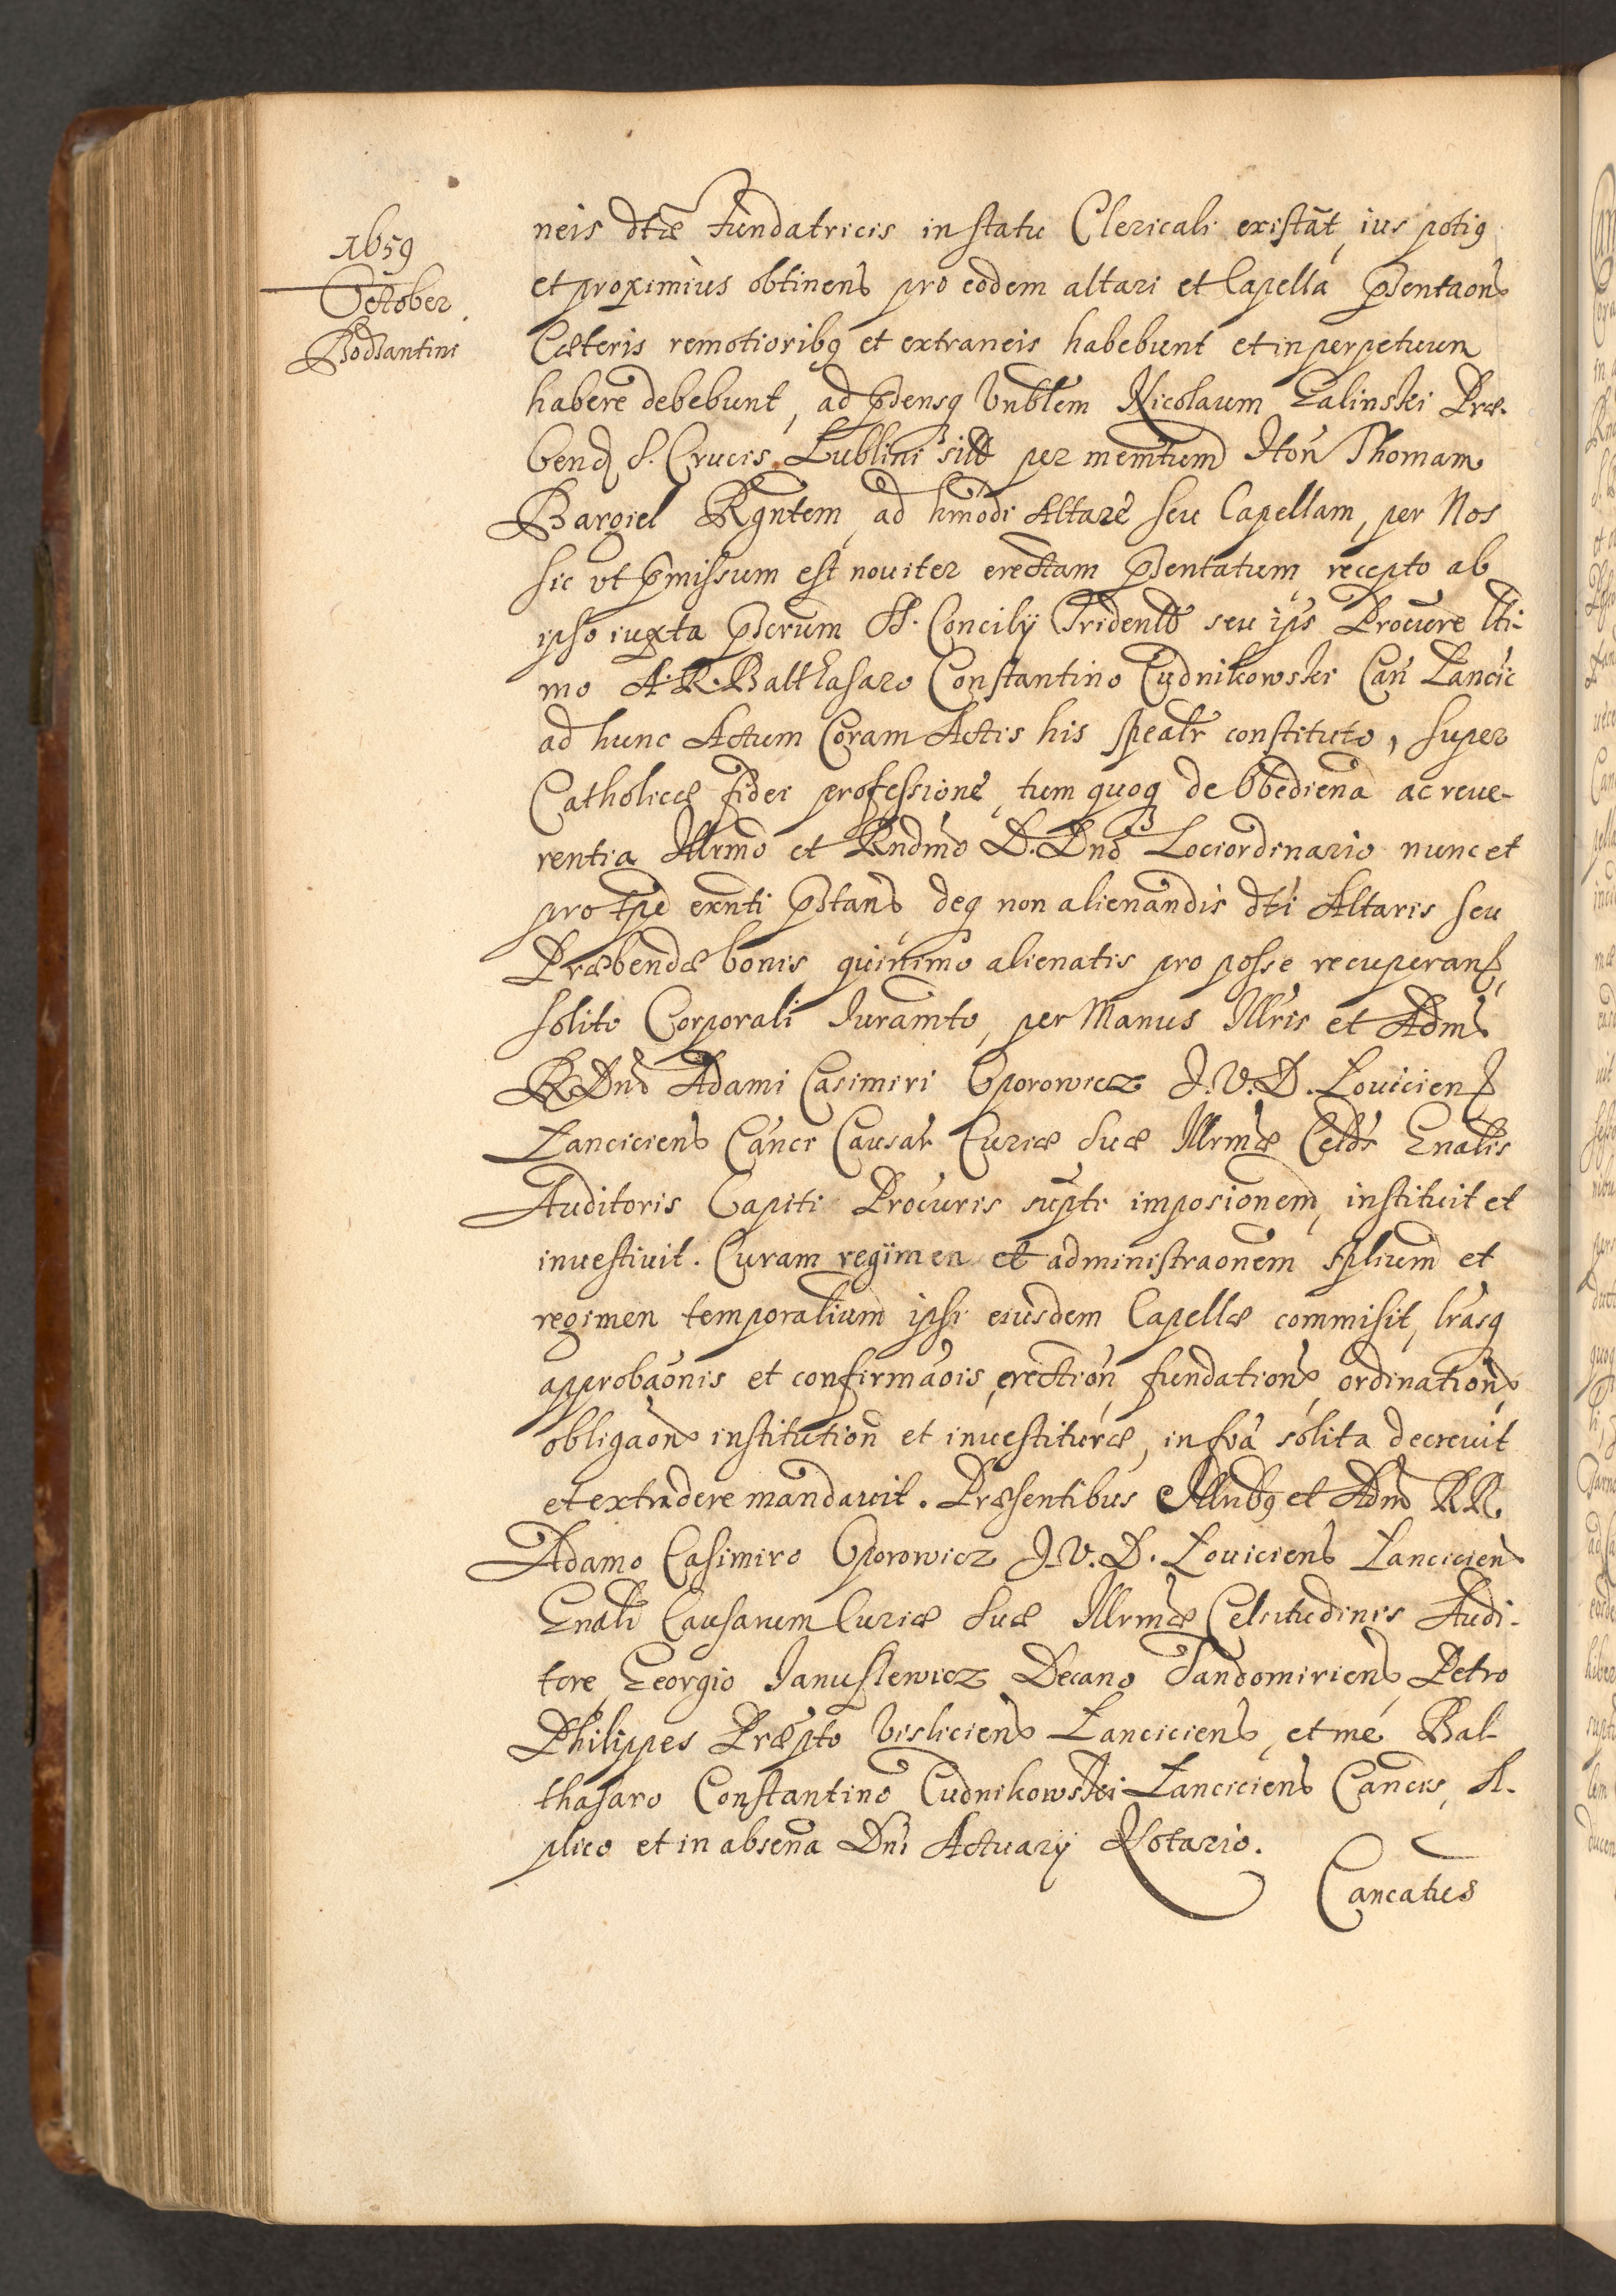 1659
October
Bodzantini
neis dtæ Fundatricis in statu Clericali existāt, ius potiꝰ
et proximiùs obtinens pro eodem altari et Capella pꝛsentaons
Cæteris remotioribꝰ et extraneis habebunt et in perpetuum
habere debebunt, ad pꝛdensqꝫ Vnblem Nicolaum Galinski Præ-
bend S. Crucis Lublini sitt per memtum Hon Thomam
Bargiel Rgntem, ad hmodi Altare seu Capellam, per Nos
sic vt pꝛmissum est nouiter erectam pꝛsentatum recepto ab
ipso iuxta pꝛscrum SS. Concilÿ Tridentt seu ips Procuꝛe lti-
mo A. R. Balthasaro Constantino Cudnikowski Can Lancic
ad hunc Actum Coram Actis his spealr constituto, super
Catholicæ fidei professione, tum quoqꝫ de Obediena ac reue-
rentia Illrmo et Rndmo D. Dno Lociordinario nunc et
pro tpe exnti pꝛstans deqꝫ non alienandis dti Altaris seu
Præbendæ bonis quinimo alienatis pro posse recuperans
solito Corporali Iuramto, per Manus Illris et Adm
R Dnd Adami Casimiri Oporowicz I. V. D. Louiciens
Lanciciens Canci Causar Curiæ Suæ Illrmæ Celds Gnalis
Auditoris Capiti Procuris supti imposionem, instituit et
inuestiuit. Curam regimen et administraonem splium et
regimen temporalium ipsi eiusdem Capellæ commisit, lrasqꝫ
approbaonis et confirmaois, erection, fundations, ordinations,
obligaons institution et inuestituræ, in foa solita decreuit
et extradere mandauit. Præsentibus Illribꝰ et Adm RR.
Adamo Casimiro Oporowicz I. V. D. Louiciens Lanciciens
Gnali Causarum Curiæ Suæ Illrmæ Celsitudinis Audi-
tore, Georgio Ianuszewicz Decano Sandomiriens, Petro
Philippes Præpto Visliciens Lanciciens, et me Bal-
thasaro Constantino Cudnikowski Lanciciens Cancis, A-
plico et in absena Dni Actuarÿ Notario.
Cancatus